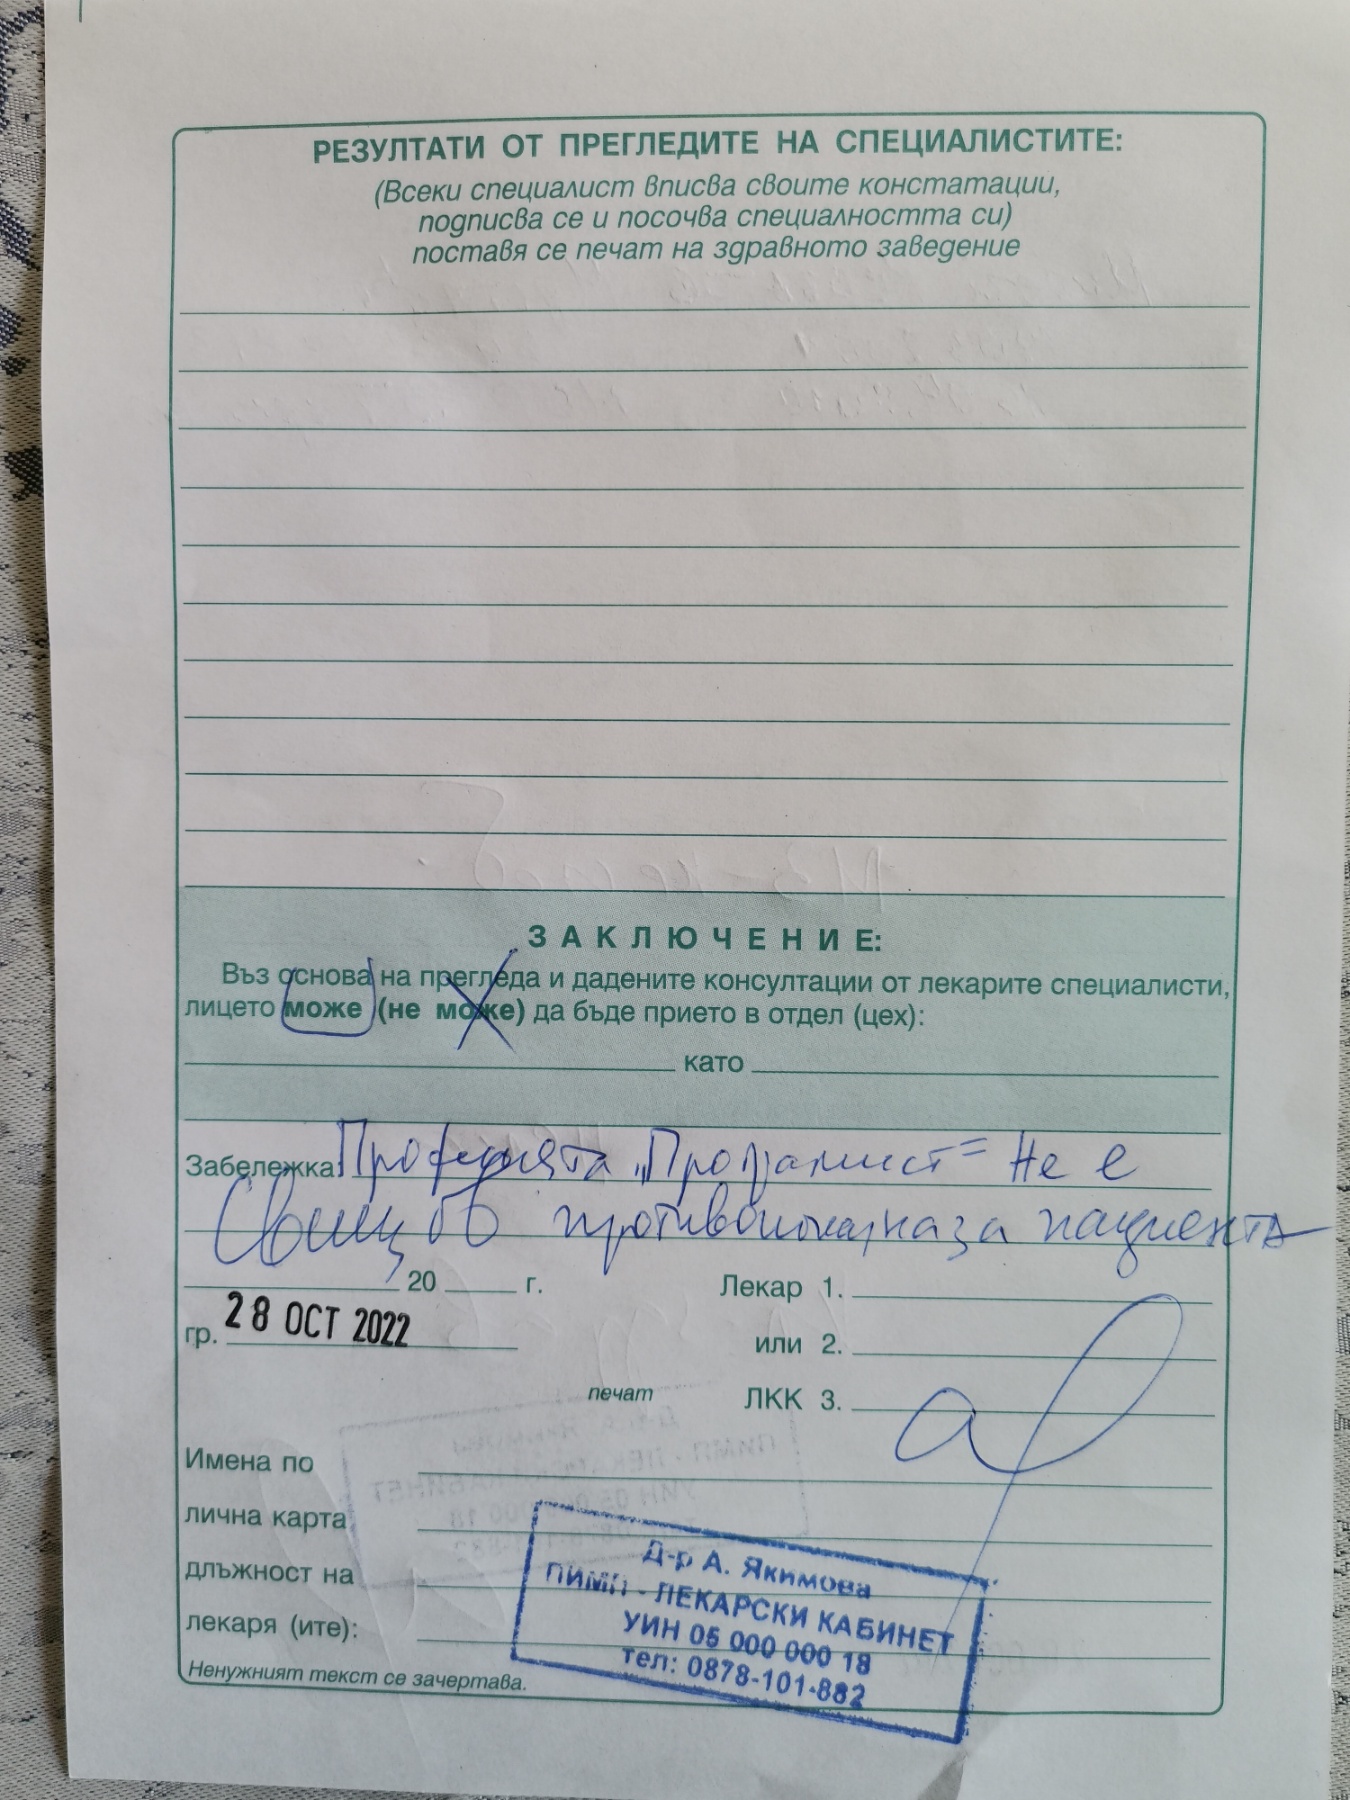 РЕЗУЛТАТИ ОТ ПРЕГЛЕДИТЕ НА СПЕЦИАЛИСТИТЕ:
(Всеки специалист вписва своите констатации,
подписва се и посочва специалността си)
поставя се печат на здравното заведение
ЗАКЛЮЧЕНИЕ:
Въз основа на прегледа и дадените консултации от лекарите специалисти,
лицето може (не може) да бъде прието в отдел (цех):
като
Забележка: Професията "Програмист" Не е
противопоказна за пациента
20 г. Лекар 1.
гр. 28 ОСТ 2022 или 2.
печат ЛКК 3.
Имена по
лична карта
длъжност на
лекаря (ите):
Ненужният текст се зачертава.
Д-р А. Якимова
ПИМП - ЛЕКАРСКИ КАБИНЕТ
УИН 05 000 000 18
тел: 0878-101-882